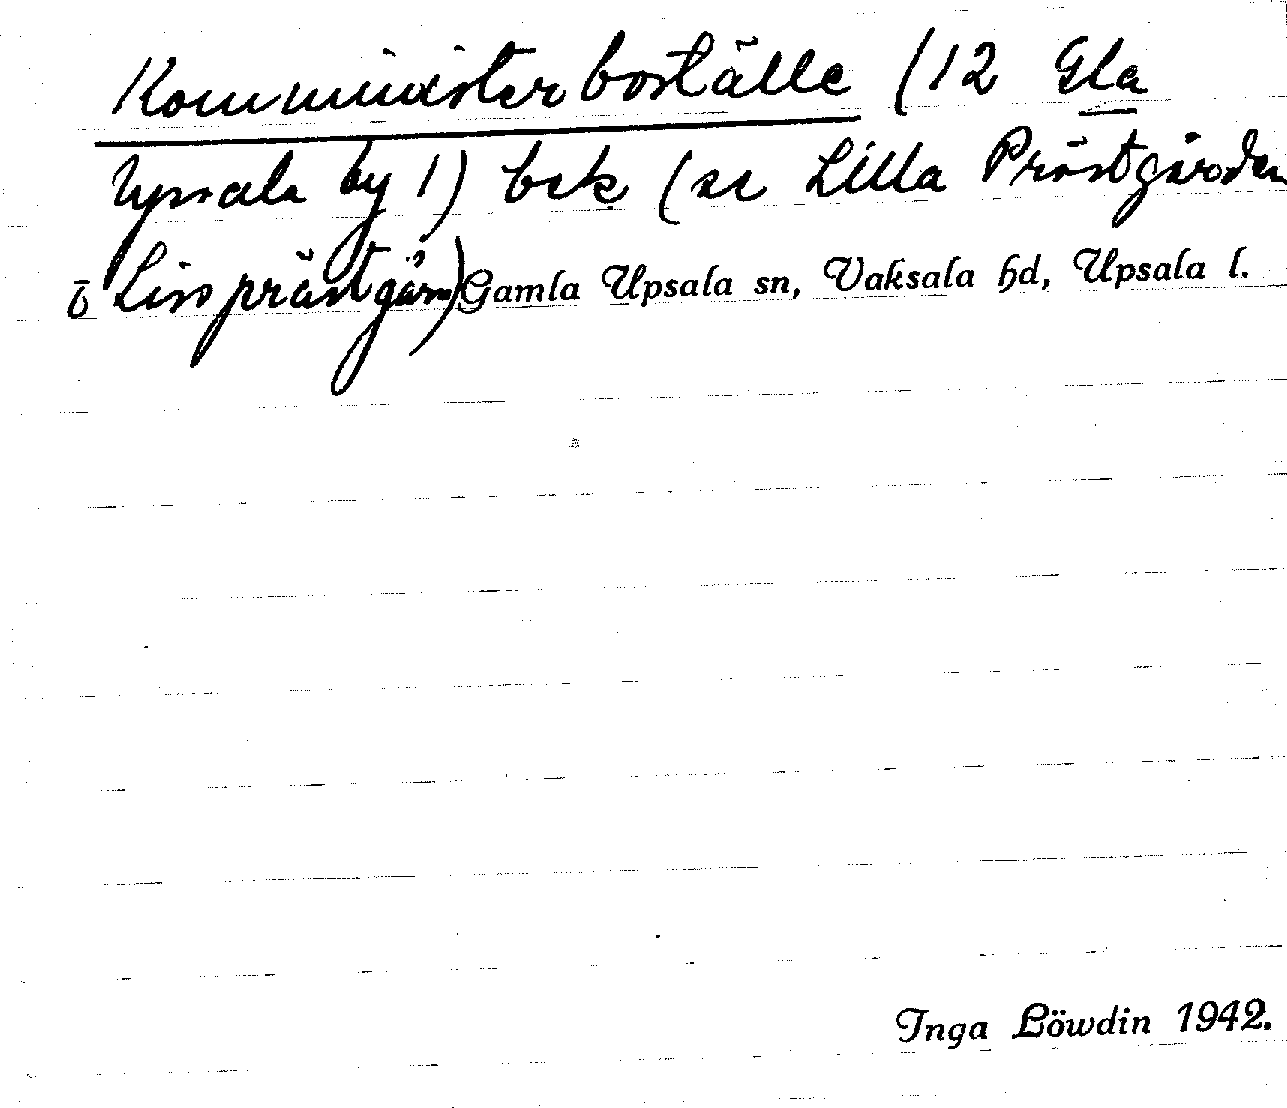 Kommunisterboställe (12 Gla
Uppsala by 1) bek (se Lilla Prästgården
ō Liss prästgårn) Gamla Upsala sn, Vaksala hd, Upsala l.
Inga Löwdin 1942.